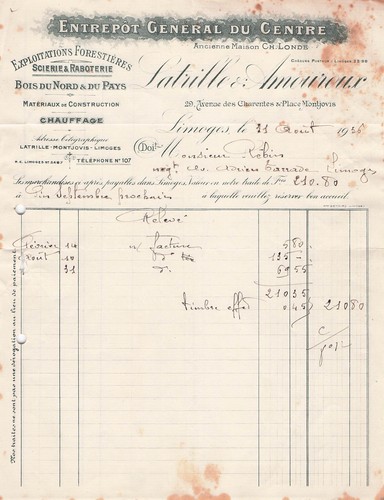 ENTREPÔT GÉNÉRAL DU CENTRE
Ancienne Maison CH. LONDE
EXPLOITATIONS FORESTIÈRES
SCIERIE & RABOTERIE
BOIS DU NORD & DU PAYS
MATÉRIAUX DE CONSTRUCTION
CHAUFFAGE
Adresse Télégraphique
LATRILLE-MONTJOVIS-LIMOGES
TÉLÉPHONE Nº 107
CHÈQUES POSTAUX : LIMOGES
Latrille & Amoureux
29, Avenue des Charentes & Place Montjovis
Limoges, le 31 Août 1926
Doit
Monsieur Robin
négt Av. Adrien Tarrade, Limoges
Les marchandises ci-après payables dans Limoges, Valeur en notre traite de Frs 210.80
à fin septembre prochain à laquelle veuillez réserver bon accueil.
Relevé
Février 14 n/ facture 5 80
Août 10 d° 135 -
" 31 d° 69 55
210 35
timbre effet 0 45 210 80
Nos traites ne sont pas une dérogation au lieu de paiement.